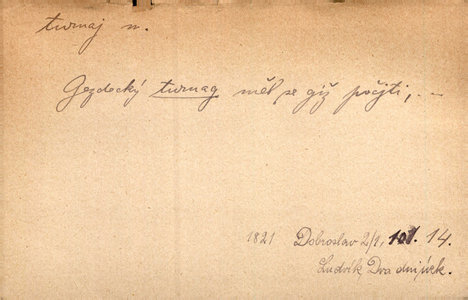 turnaj m.
Gezdecký turnag měl se giž počjti, . —
1821 Dobroslav 2/1, 101. 14.
Ludvík Dva dni